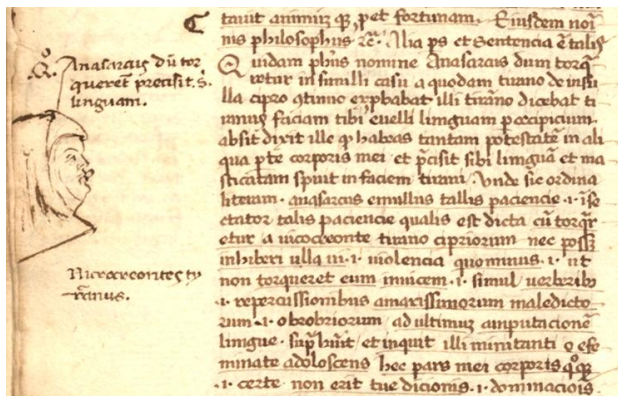 tauit animũ q̃ p̃et fortunam. Eiusdem noĩ
nis philosophus rẽ. Alia ps et Sentencia ẽ talis
Quidam phũs nomine Anasarcus dum torq̃
retur in simili casu a quodam tirano de insu
lla cipro qtinuo exprobabat illi tirano dicebat ti
ranus faciam tibi euelli linguam
absit dixit ille q habeas tantam potestatẽ in ali
qua pte corporis mei et pcisit sibi linguã et ma
sticatam spuit in faciem tirani. Unde sic ordina
literam. anasarcus emullus tallis paciencie .i. ise
ctator talis paciencie qualis est dicta cũ torqr
etur a nicocreonte tirano cipriorum nec possz
inhiberi ulla ui .i. uiolencia quominus .i. ut
non torqueret eum inuicem .i. simul uerberib
.i. repercussionibus amarissimorum maledicto
rum .i. obrobriorum ad ultimuz amputacionẽ
lingue et inquit illi minitanti o efe
minate adoloscens hec pars mei corporis
.i. certe non erit tue dicionis .i. dominaciois.
Anasarcus dũ tor
querent precisit .s.
linguam.
Nicrocreontes ty
rãnus.